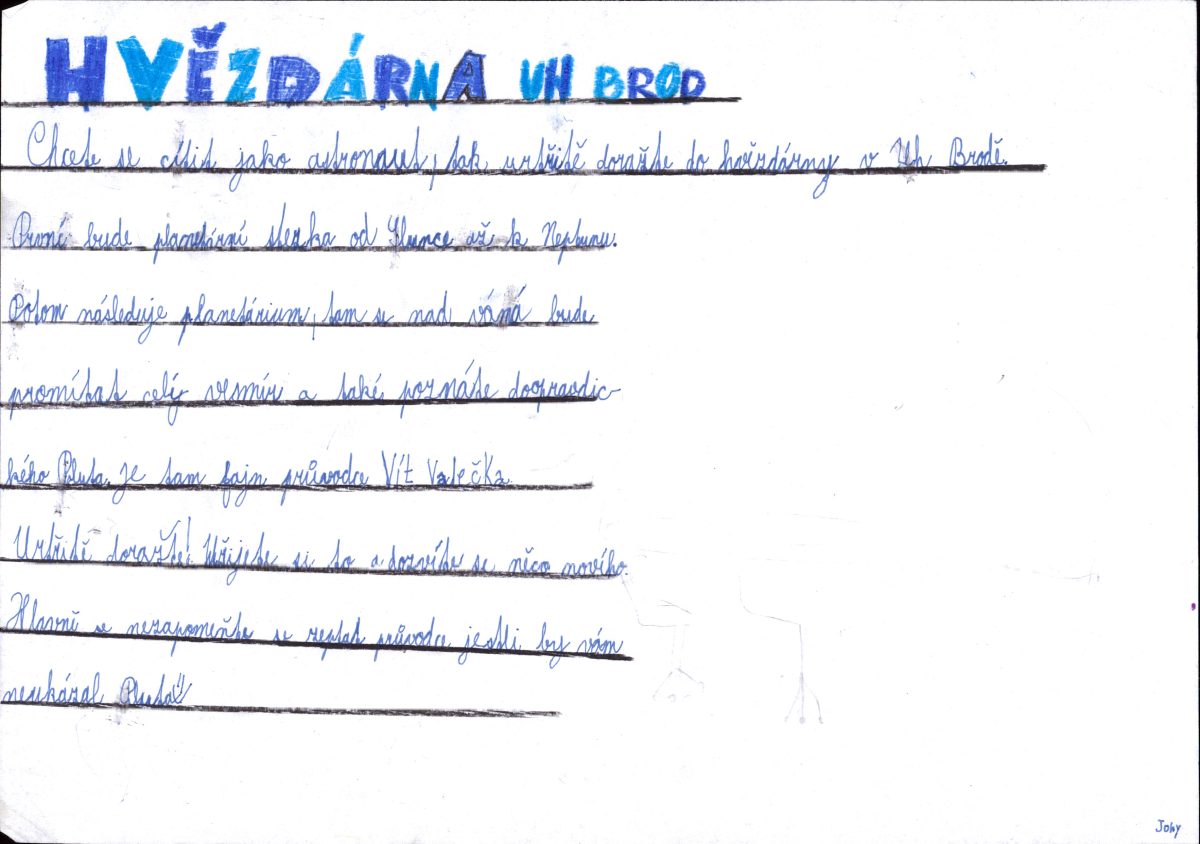 HVĚZDÁRNA UH BROD
Chcete se cítit jako astronaut, tak určitě doražte do hvězdárny v Uh Brodě.
První bude planetární stezka od Slunce až k Neptunu.
Potom následuje planetárium, tam se nad váná bude
promítat celý vesmír a také poznáte doopravdic-
kého Pluta. Je tam fajn průvodce Vít Valečka.
Určitě doražte! Užijete si to a dozvíte se něco nového.
Hlavně se nezapomeňte se zeptat průvodce jestli by vám
neukázal Pluta!
Johy